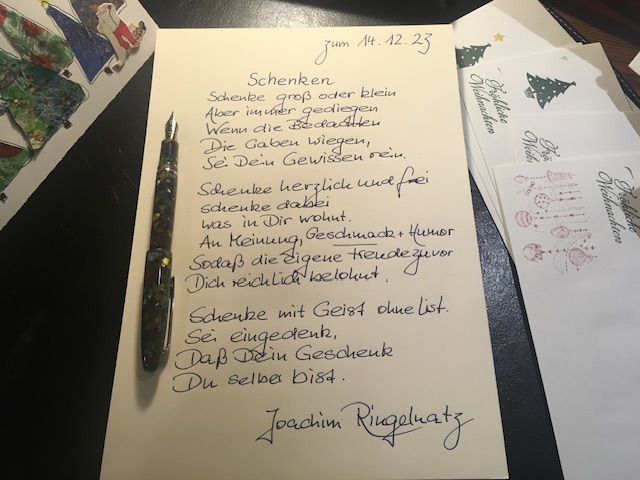 zum 14.12.23
Schenken
Schenke groß oder klein
Aber immer gediegen
Wenn die Bedachten
Die Gaben wiegen,
Sei Dein Gewissen rein.
Schenke herzlich und frei
schenke dabei
was in Dir wohnt.
An Meinung, Geschmack + Humor
Sodaß die eigene Freude zuvor
Dich reichlich belohnt.
Schenke mit Geist ohne List.
Sei eingedenk,
Daß Dein Geschenk
Du selber bist.
Joachim Ringelnatz
Fröhliche
Weihnachten
Fröhliche
Weihnachten
Fröhliche
Weihnachten